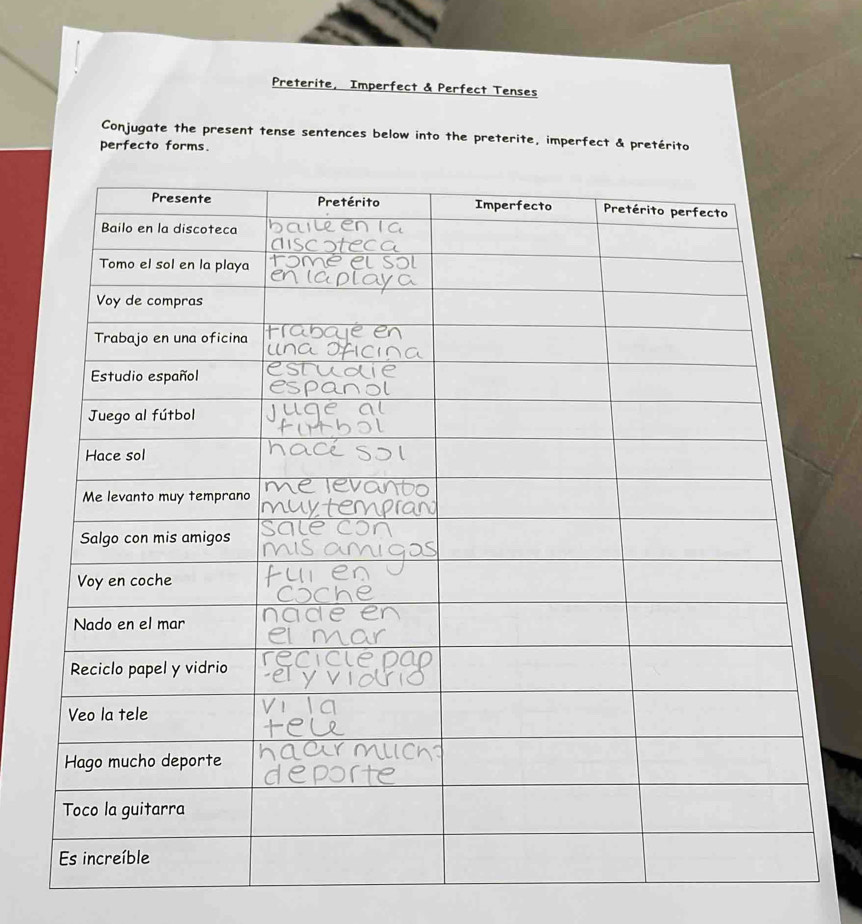 Preterite, Imperfect & Perfect Tenses
Conjugate the present tense sentences below into the preterite, imperfect & pretérito
perfecto forms.
Presente Pretérito Imperfecto Pretérito perfecto
Bailo en la discoteca
baile en la
discoteca
Tomo el sol en la playa
tomé el sol
en la playa
Voy de compras
Trabajo en una oficina
trabajé en
una oficina
Estudio español
estudie
español
Juego al fútbol
jugé al
futbol
Hace sol
hacé sol
Me levanto muy temprano
me levanto
muy temprano
Salgo con mis amigos
salé con
mis amigos
Voy en coche
fui en
coche
Nado en el mar
nade en
el mar
Reciclo papel y vidrio
reciclé pap
-el y vidrio
Veo la tele
vi la
tele
Hago mucho deporte
mucho
deporte
Toco la guitarra
Es increíble